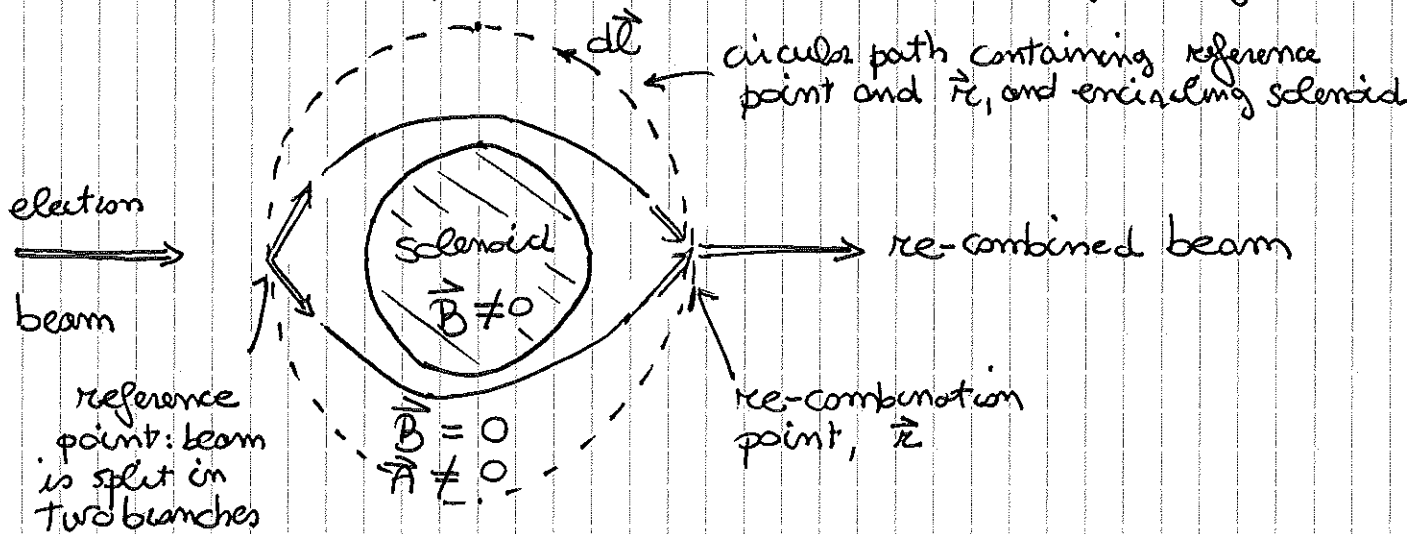 dl
circular path containing reference
point and r, and encircling solenoid
election
beam
solenoid
B ≠ 0
re-combined beam
reference
point: beam
is split in
two branches
B = 0
A ≠ 0
re-combination
point, r